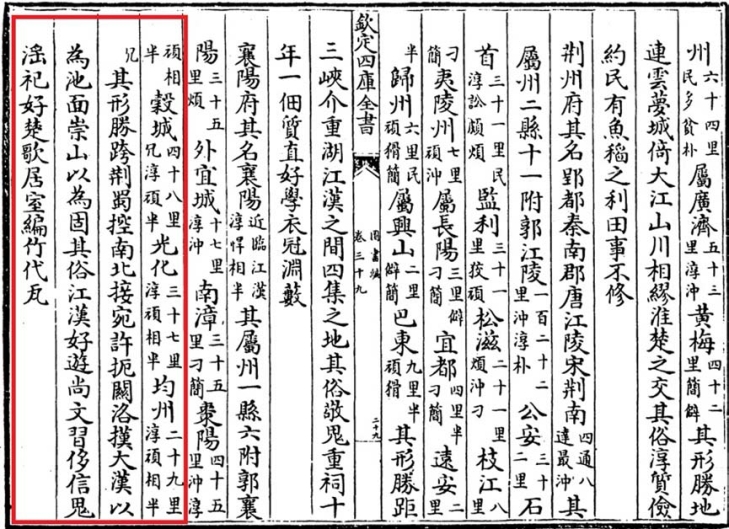 州六十四里民多貧朴屬廣濟五十三里淳沖黄梅四十二里簡僻其形勝地
連雲夢城倚大江山川相繆淮楚之交其俗淳質儉
約民有魚稻之利田事不修
荆州府其名郢都秦南郡唐江陵宋荆南四通八達最沖其
屬州二縣十一附郭江陵一百二十二里沖淳朴公安三十二里石
首三十一里民淳訟頗煩監利三十一里狡頑松滋二十一里煩沖刁枝江八里
刁簡夷陵州七里頑沖屬長陽三里僻刁簡宜都四里半刁簡逺安二里
半歸州六里民頑猾簡屬興山二里僻簡巴東九里半頑猾其形勝距
欽定四庫全書
圖書編
卷三十九
二十九
三峽介重湖江漢之間四集之地其俗敬鬼重祠十
年一佃質直好學衣冠淵藪
襄陽府其名襄陽近臨江漢淳悍相半其屬州一縣六附郭襄
陽三十五里煩外宜城十七里淳沖南漳三十五里刁簡棗陽四十五里沖淳
頑相半榖城四十八里兄淳頑半光化三十七里淳頑相半均州二十九里淳頑相半
兄其形勝跨荆蜀控南北接宛許扼關洛摸大漢以
為池面崇山以為固其俗江漢好遊尚文習侈信鬼
滛祀好楚歌居室編竹代瓦